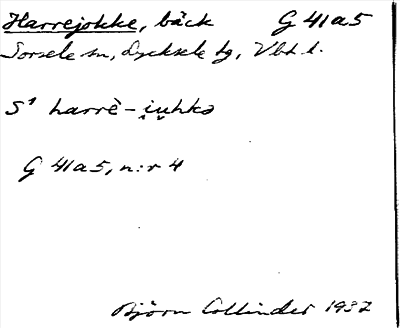 Harrejokke, bäck G 41a5
Sorsele sn, Lycksele tg, Vbt l.
S¹ harrè-i̯u̯hkə
G 41a5, n:r 4
Björn Collinder 1937